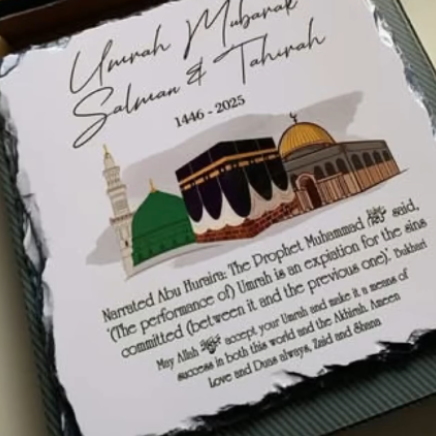 Umrah Mubarak
Salman & Tahirah
1446 - 2025
Narrated Abu Huraira: The Prophet Muhammad ﷺ said,
'(The performance of) Umrah is an expiation for the sins
committed (between it and the previous one).' Bukhari
May Allah ﷻ accept your Umrah and make it a means of
success in both this world and the Akhirah. Ameen
Love and Duas always, Zaid and Shana